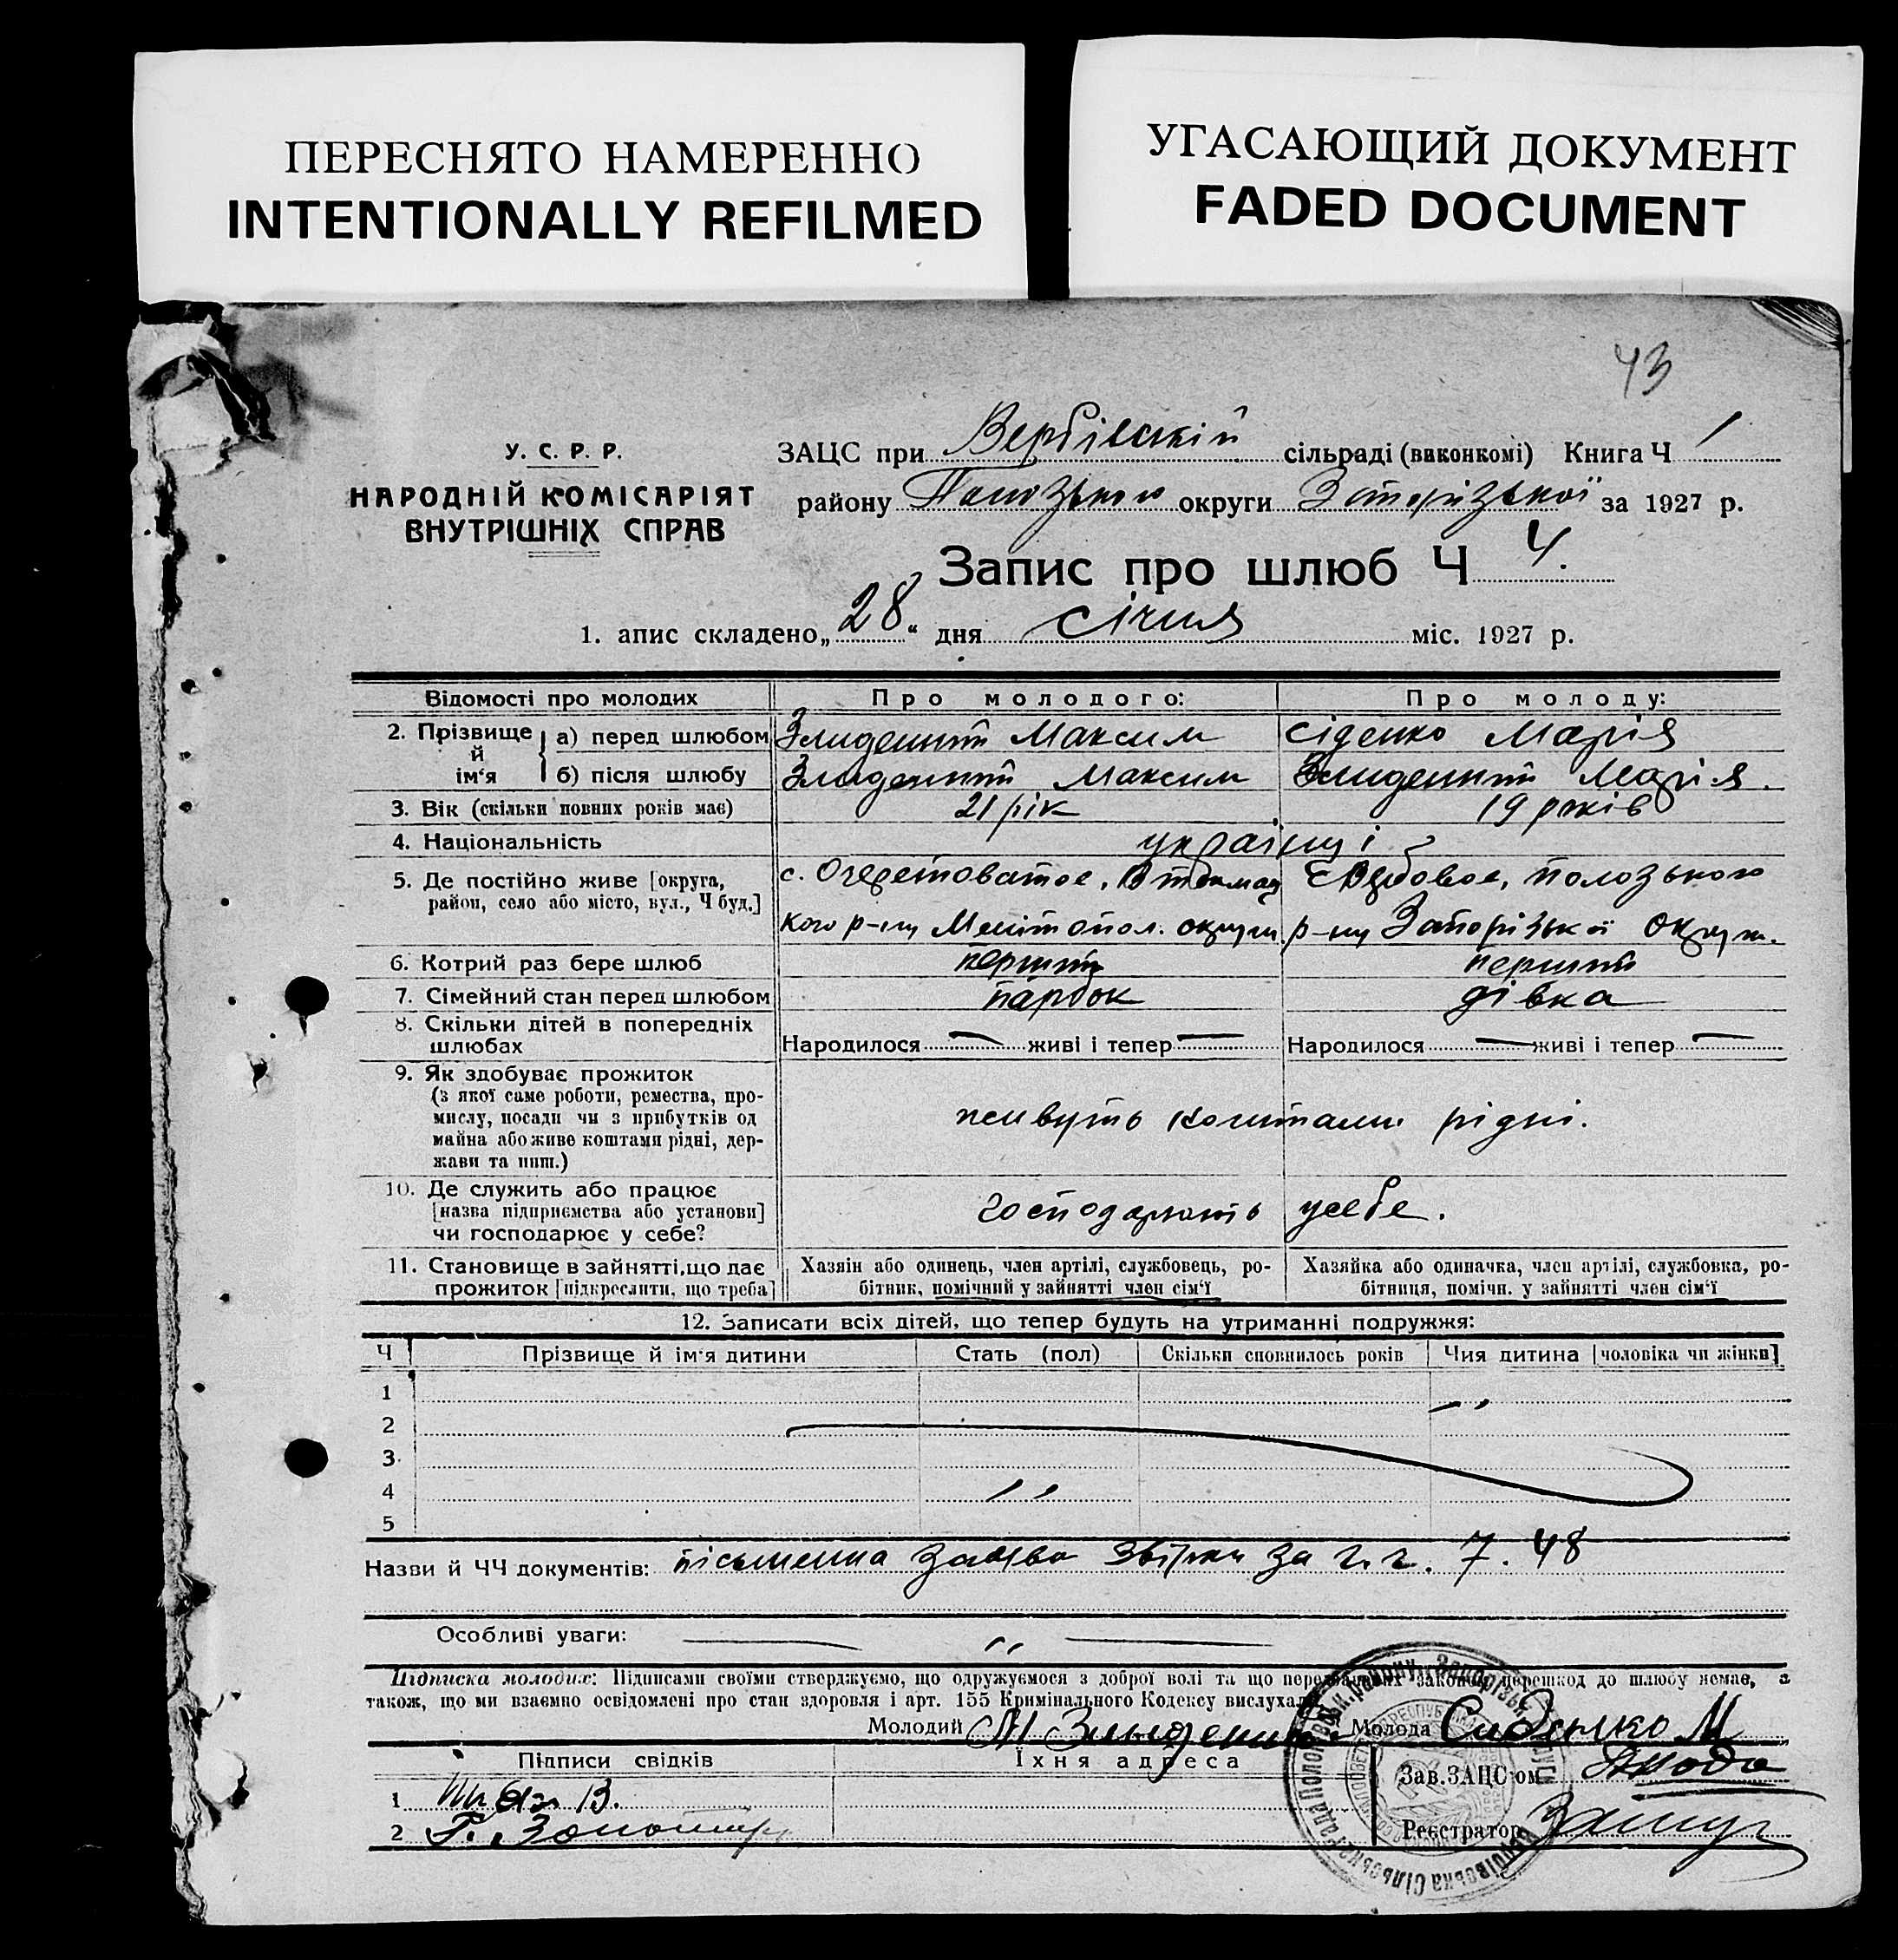 ПЕРЕСНЯТО НАМЕРЕННО
INTENTIONALLY REFILMED
УГАСАЮЩИЙ ДОКУМЕНТ
FADED DOCUMENT
43
У. С. Р. Р.
НАРОДНІЙ КОМІСАРІЯТ
ВНУТРІШНІХ СПРАВ
ЗАЦС при Вербівській сільраді (виконкомі) Книга Ч 1
району Полозького округи Запорізької за 1927 р.
Запис про шлюб Ч 4.
1. апис складено „28“ дня січня міс. 1927 р.
Відомості про молодих Про молодого: Про молоду:
2. Прізвище й ім‘я
а) перед шлюбом Злиденний Максим Сіденко Марія
б) після шлюбу Злиденний Максим Злиденний Марія.
3. Вік (скільки повних років має) 21 рік 19 років
4. Національність українці
5. Де постійно живе [округа, с. Очеретоватое, с. Вербовое, Полозького
район, село або місто, вул., Ч буд.] кого р-ну Мелітопол. округи. р-ну Запорізької округ.
6. Котрий раз бере шлюб перший перший
7. Сімейний стан перед шлюбом парубок дівка
8. Скільки дітей в попередніх
шлюбах Народилося — живі і тепер — Народилося — живі і тепер —
9. Як здобуває прожиток
(з якої саме роботи, ремества, про-
мислу, посади чи з прибутків од
майна або живе коштами рідні, дер-
жави та инш.)
живуть коштами рідні.
10. Де служить або працює
[назва підприємства або установи]
чи господарює у себе?
господарюють усебе.
11. Становище в зайнятті, що дає Хазяін або одинець, член артілі, службовець, ро- Хазяйка або одиначка, член артілі, службовка, ро-
прожиток [підкреслити, що треба] бітник, помічний у зайнятті член сім‘ї бітниця, помічн. у зайнятті член сім‘ї
12. Записати всіх дітей, що тепер будуть на утриманні подружжя:
Ч Прізвище й ім‘я дитини Стать (пол) Скільки сповнилось років Чия дитина [чоловіка чи жінки]
1
2
3
4
5
Назви й ЧЧ документів: письменна заява за 7. 48
Особливі уваги: — „ —
Підписка молодих: Підписами своїми стверджуємо, що одружуємося з доброї волі та що передбачених законом перешкод до шлюбу немає, а
також, що ми взаємно освідомлені про стан здоровля і арт. 155 Кримінального Кодексу вислухали
Молодий М Злыденный Молода Сиденко М
Підписи свідків Їхня адреса
Зав. ЗАЦС‘ом
1
2
Реєстратор